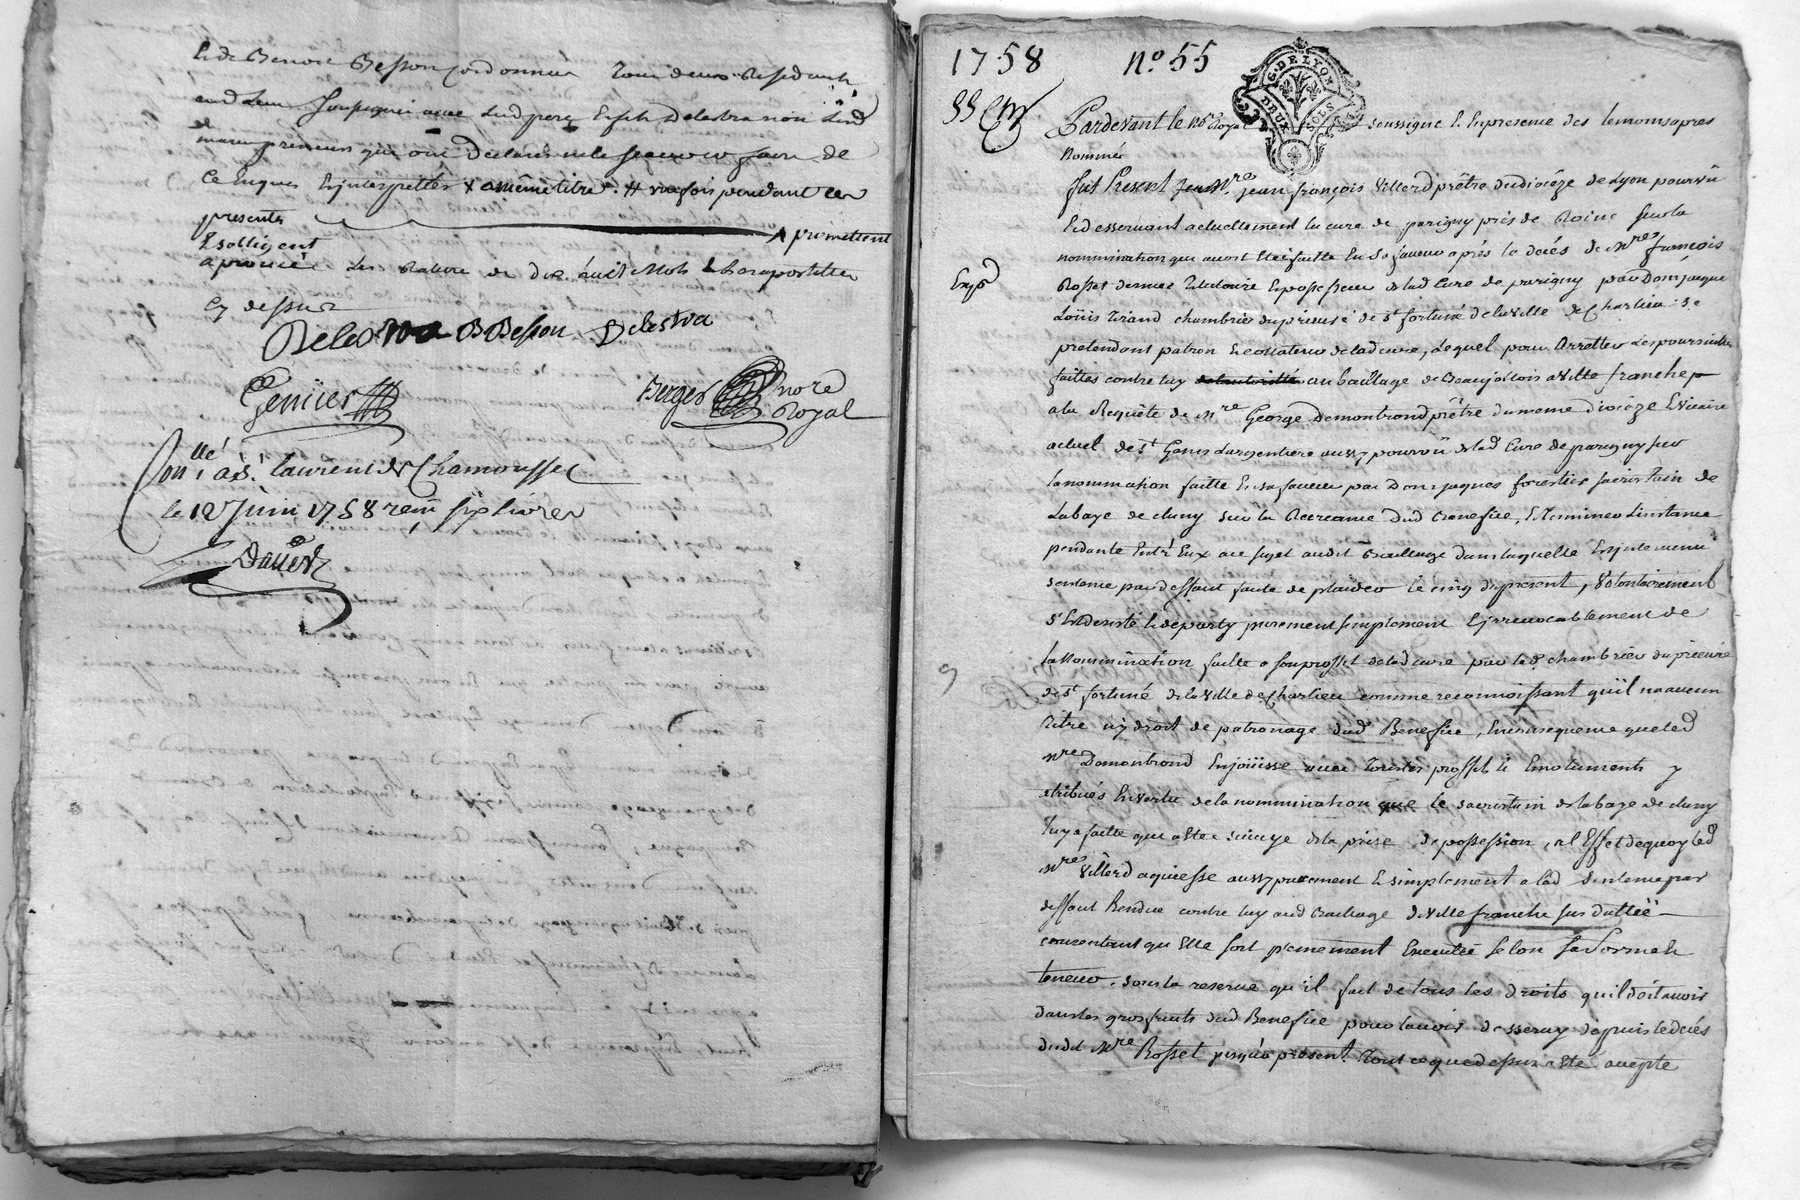 Et de Benoit Besson cordonnier tous deux Residents
aud lieu soussignés avec led pere et fils Delestra non led
preneur qui ont declaré ne le scavoir faire de
ce enquis Et interpellés x a même titre. # une fois pendant ces
presentes promettent
Et obligent
aprouvé les Rature de dix huit Mots et les apostilles
cy dessus
Delestra B Besson Delestra
Genüer Berger nore
Royal
Conllé à St laurent de Chamousset
le 12 Juin 1758 reçu six livres
1758 no. 55
G. DE LYON
DEUX SOLS
Pardevant le nore Royal soussigné Et En presence des temoins apres
Nommés
fut Present Mre. jean françois Villerd prêtre du dioceze de Lyon pourvû
Et desservant actuellement la cure de parigny prés de Roane sur la
nommination qui auroit Eté faitte En sa faveur après le decés de Mres françois
Rosset dernier Titulaire Et possesseur de lad Cure de parigny par Dom jacque
Loüis Tirand chambrier du prieuré de St fortuné de la Ville de Charlieu se
pretendant patron Et collateur de lad cure, Lequel pour Arretter Les poursuittes
faittes contre luy au bailliage de Beaujollois a Ville franche
a la Requête de Mre George Demontrond prêtre du meme dioceze Et vicaire
actuel de St Genis Largentiere aussy pourvû de lad Cure de parigny sur
la nommination faitte En sa faveur par Dom jaques forestier sacristain de
Labaye de cluny sur la Vaccance dud Benefice, Et terminer Linstance
pendante Entr'Eux au sujet aud Bailliage dans laquelle Est intervenu
sentence par deffaut faute de plaider le cinq du present, Volontairement
s'Est desisté Et departy purement simplement Et irrevocablement de
la Nommination faitte a son proffit de lad cure par led chambrier du prieuré
de St fortuné de la Ville de Charlieu comme reconnoissant qu'il n'a aucun
Titre ny droit de patronage dud Benefice, En consequence que led
Mre Demontrond En joüisse avec tous les proffits Et Emoluments y
atribués En vertu de la nommination que le sacristain de labaye de cluny
luy a faitte qui a Eté suivye de la prise de possession, a l'Effet de quoy led
Mre Villerd aquiesse aussy purement Et simplement a lad sentence par
deffaut Rendue contre luy aud Bailliage de Ville franche sus dattée
consentant qu'Elle soit pleinement Executée selon sa forme Et
teneur. sous la reserve qu'il fait de tous les droits qu'il doit avoir
dans les gros fruits dud Benefice pour l'avoir desservy depuis le decés
dudit Mre Rosset jusqu'a present. Tout ce que dessus a Eté accepté